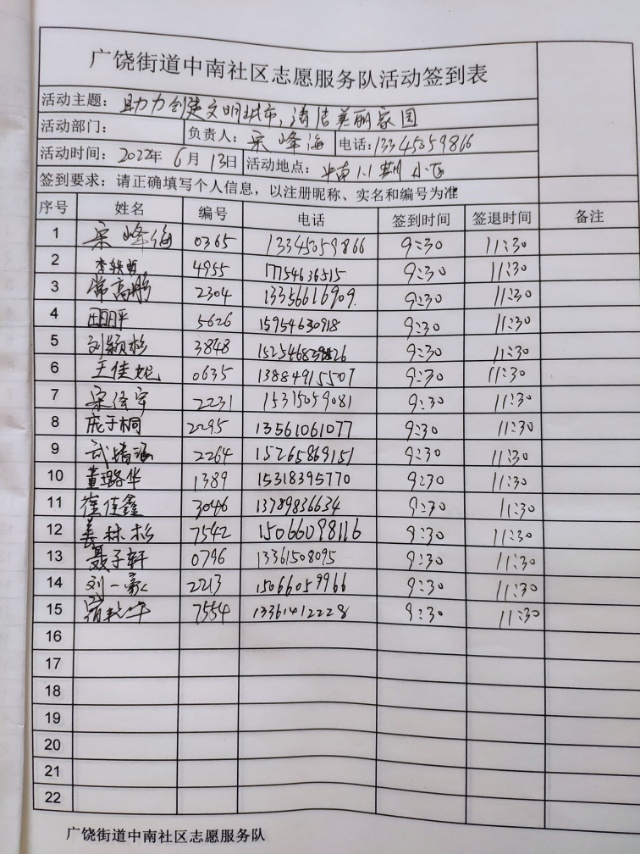 广饶街道中南社区志愿服务队活动签到表
活动主题: 助力创建文明城市,清洁美丽家园
活动部门: 负责人: 宋峰海 电话: 13345059866
活动时间: 2022年6月13日 活动地点: 小区
签到要求: 请正确填写个人信息,以注册昵称、实名和编号为准
序号 姓名 编号 电话 签到时间 签退时间 备注
1 宋峰海 0365 13345059866 9:30 11:30
2 4955 17754636515 9:30 11:30
3 常高彤 2304 13356616909 9:30 11:30
4 5626 15954630918 9:30 11:30
5 刘颖杉 3848 9:30 11:30
6 王佳妮 0635 13884915507 9:30 11:30
7 2231 15315059081 9:30 11:30
8 庞子桐 2295 13561061077 9:30 11:30
9 武 2264 15265869151 9:30 11:30
10 董璐华 1389 15318395770 9:30 11:30
11 崔佳鑫 3046 13789836634 9:30 11:30
12 姜林杉 7542 15066098116 9:30 11:30
13 聂子轩 0796 13361508095 9:30 11:30
14 刘一 2213 15066059966 9:30 11:30
15 7554 13361412228 9:30 11:30
16
17
18
19
20
21
22
广饶街道中南社区志愿服务队